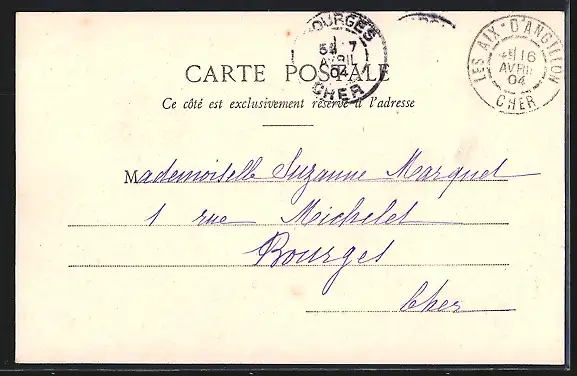 BOURGES
5E 7
AVRIL
04
CHER
LES AIX-D'ANGILLON
16
AVRIL
04
CHER
CARTE POSTALE
Ce côté est exclusivement réservé à l'adresse
Mademoiselle Suzanne Marquet
1 rue Michelet
Bourges
Cher